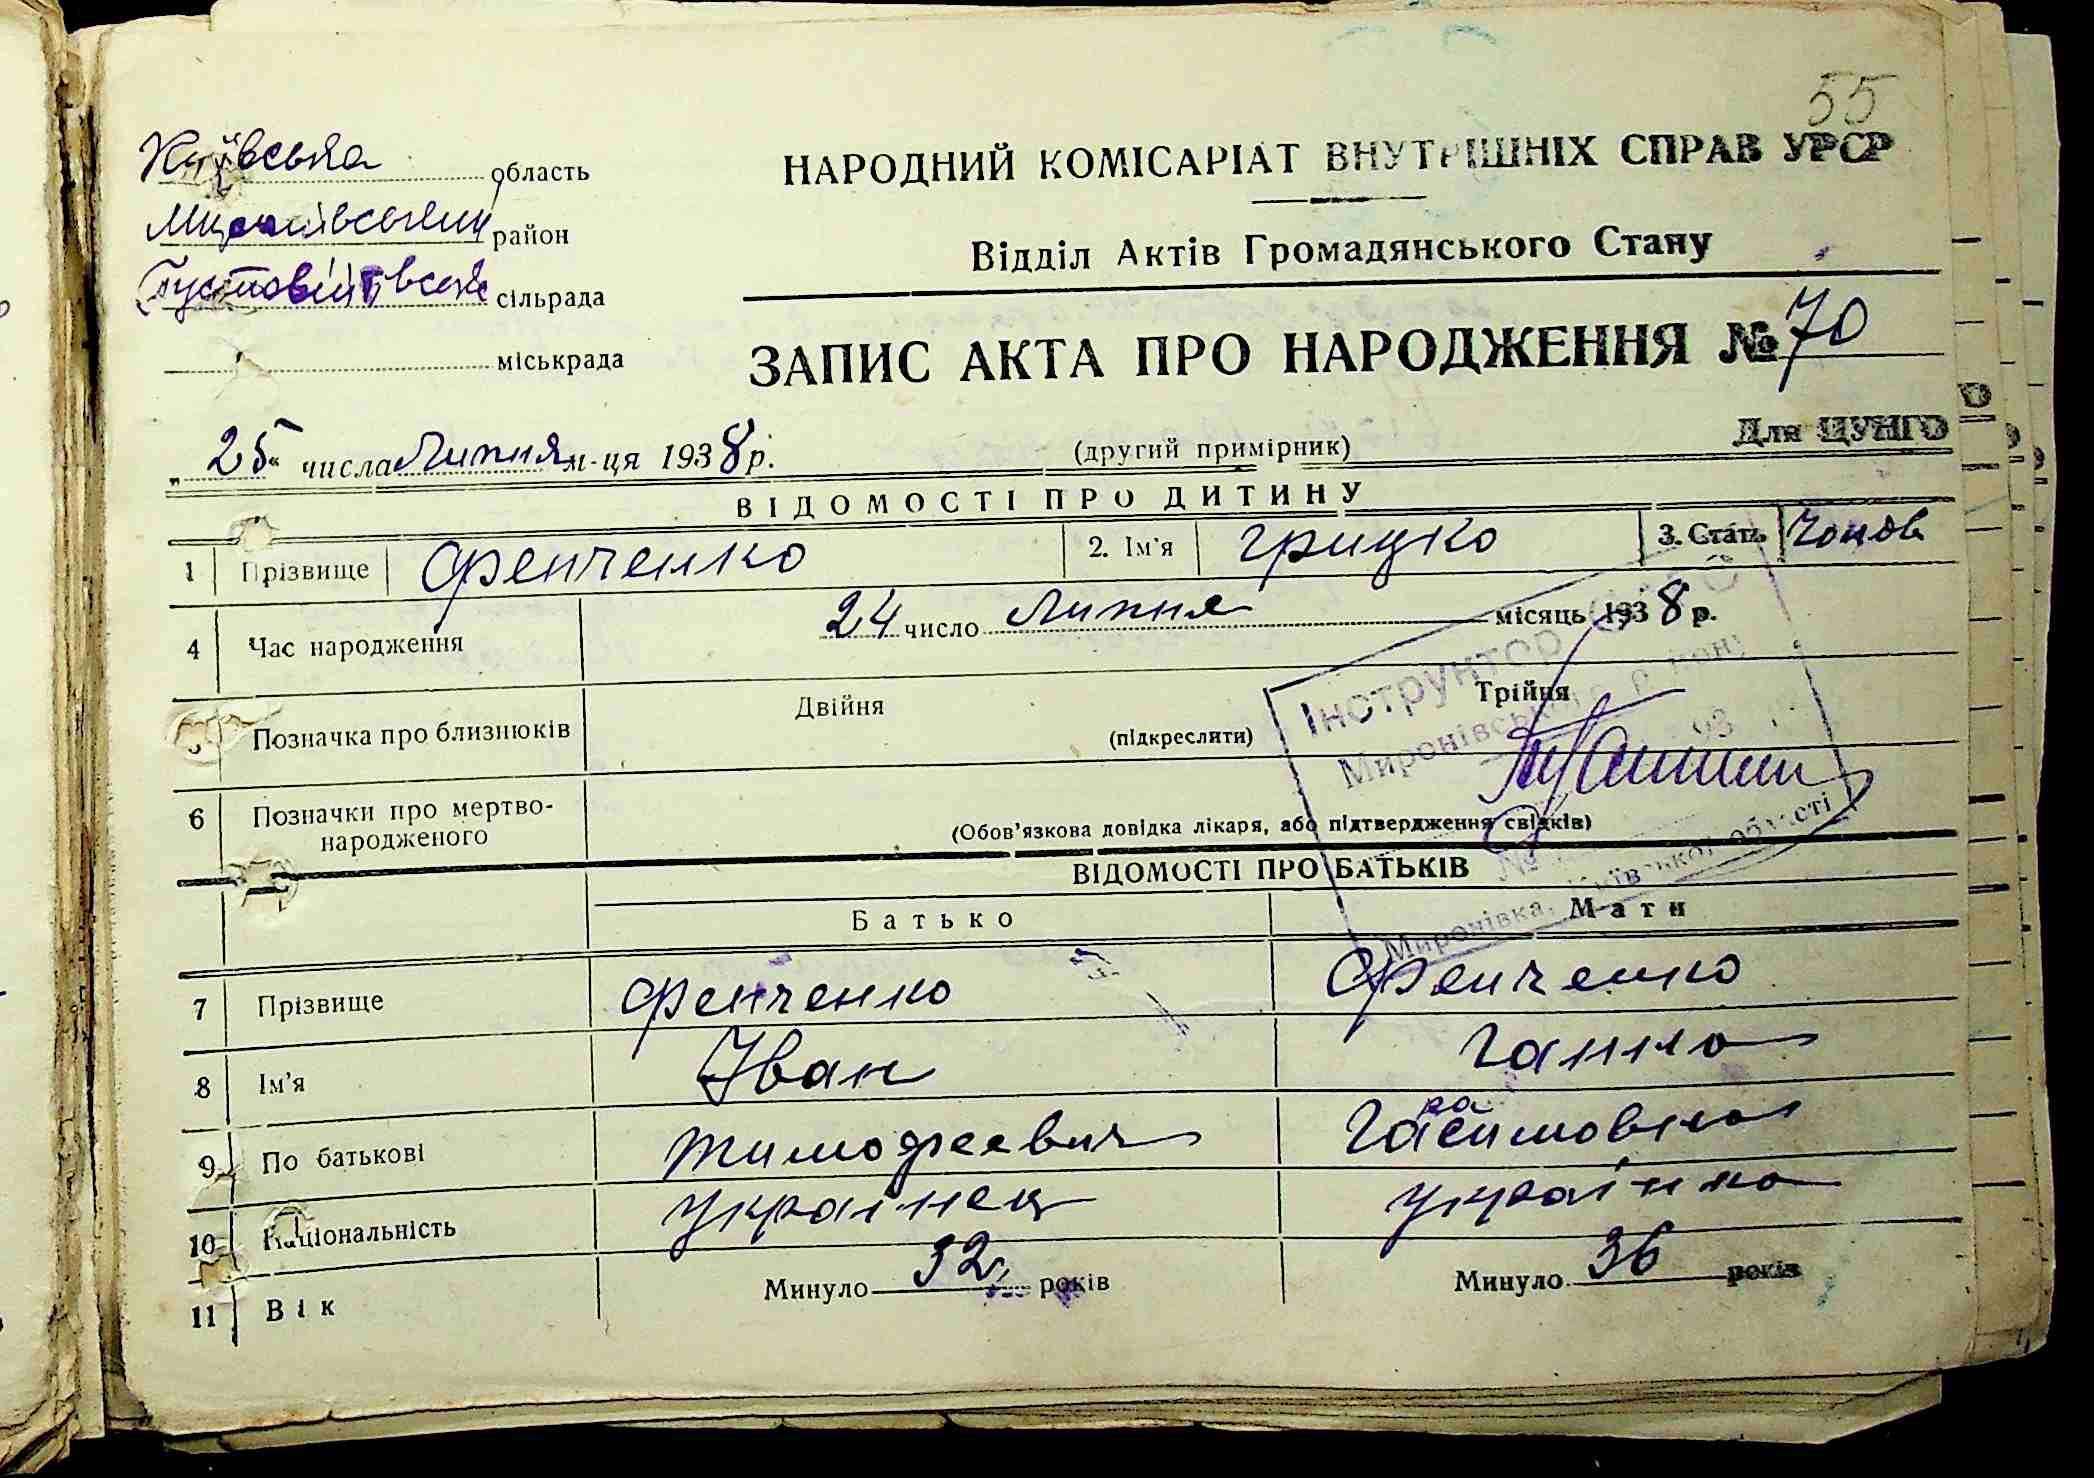 55
Київська область
Миронівський район
Пустовітівська сільрада
міськрада
НАРОДНИЙ КОМІСАРІАТ ВНУТРІШНІХ СПРАВ УРСР
Відділ Актів Громадянського Стану
ЗАПИС АКТА ПРО НАРОДЖЕННЯ № 70
„25“ числа Липня м-ця 1938 р.
(другий примірник)
Для ЦУНГО
ВІДОМОСТІ ПРО ДИТИНУ
1 Прізвище Фенченко 2. Ім'я Грицко 3. Стать Чолов
4 Час народження 24 число Липня місяць 1938 р.
Позначка про близнюків Двійня (підкреслити) Трійня
6 Позначки про мертво-
народженого
(Обов'язкова довідка лікаря, або підтвердження свідків)
Інструктор
Миронівського району
Миронівка, Київської області
ВІДОМОСТІ ПРО БАТЬКІВ
Батько Мати
7 Прізвище Фенченко Фенченко
8 Ім'я Іван Ганна
9 По батькові Тимофеевич
10 Національність Українец Українка
11 Вік Минуло 32 років Минуло 36 років